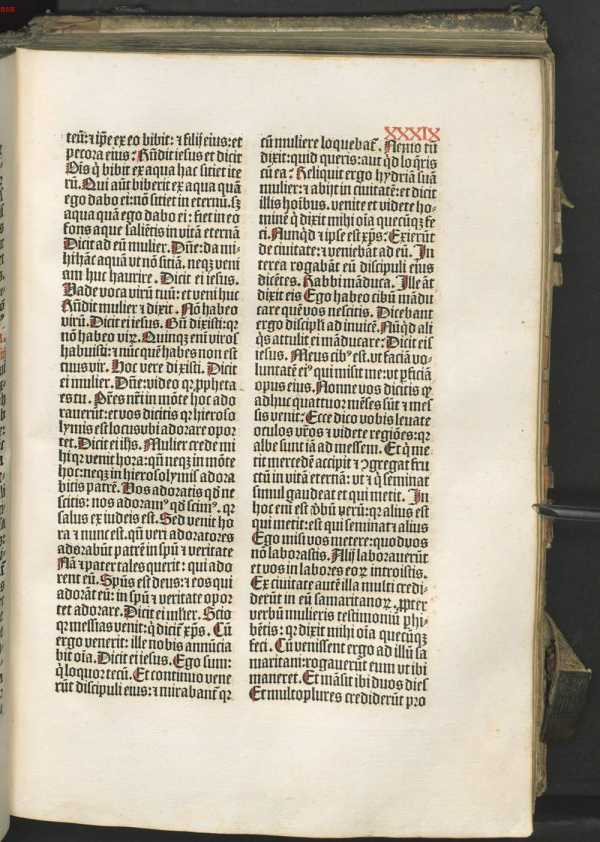 XXXIX
teū: ⁊ ip̄e ex eo bibit: ⁊ filij eius: et
pecora eius: Rn̄dit iesus et dicit
Ois q̇ bibit ex aqua hac sitiet ite
rū. Qui aūt biberit ex aqua quā
ego dabo ei: nō sitiet in eternū. sꝫ
aqua quā ego dabo ei: fiet in eo
fons aque saliētis in vitā eternā
Dicit ad eū mulier. Dn̄e: da mi-
hi hāc aquā vt nō sitiā. neqꝫ veni
am huc haurire. Dicit ei iesus.
Vade voca virū tuū: et veni huc
Rn̄dit mulier ⁊ dixit. Nō habeo
virū. Dicit ei iesus. Bn̄ dixisti: qꝛ
nō habeo virꝫ. Quinqꝫ em̄ viros
habuisti: ⁊ nūc quē habes non est
tuus vir. Hoc vere dixisti. Dicit
ei mulier. Dn̄e: video qꝛ ꝓpheta
es tu. Pr̄es nr̄i in mōte hoc ado
rauerūt: et vos dicitis qꝛ hieroso
lymis est locus vbi adorare opor
tet. Dicit ei ih̄s. Mulier crede mi
hi qꝛ venit hora: qn̄ neqꝫ in mōte
hoc: neqꝫ in hierosolymis adora
bitis patrē. Vos adoratis qd̄ ne
scitis: nos adoramꝰ qd̄ scimꝰ. qꝛ
salus ex iudeis est. Sed venit ho
ra ⁊ nunc est. qn̄ veri adoratores
adorabūt patrē in spū ⁊ veritate
Nā ⁊ pater tales querit: qui ado
rent eū. Spūs est deus: ⁊ eos qui
adorāt eū: in spū ⁊ veritate opor
tet adorare. Dicit ei mlier. Scio
qꝛ messias venit: q̇ dicit᷑ xp̄s. Cū
ergo venerit: ille nobis annūcia
bit oīa. Dicit ei iesus. Ego sum:
q̇ loquor tecū. Et continuo vene
rūt discipuli eius: ⁊ mirabant᷑ qꝛ
cū muliere loquebat᷑. Nemo tn̄
dixit: quid queris: aut qd̄ loq̄ris
cū ea: Reliquit ergo hydriā suā
mulier: ⁊ abijt in ciuitatē: et dicit
illis hoībus. venite et videte ho-
minē q̇ dixit mihi oīa quecūqꝫ fe
ci. Nunqd̄ ⁊ ipse est xp̄s: Exierūt
de ciuitate: ⁊ veniebāt ad eū. In
terea rogabāt eū discipuli eius
dicētes. Rabbi māduca. Ille āt
dixit eis Ego habeo cibū mādu
care quē vos nescitis. Dicebant
ergo discipli ad inuicē. Nūqd̄ ali
q̇s attulit ei māducare: Dicit eis
iesus. Meus cibꝰ est. vt faciā vo-
luntatē eiꝰ qui misit me: vt ꝑficiā
opus eius. Nonne vos dicitis qꝫ
adhuc quattuor mēses sūt ⁊ mes
sis venit: Ecce dico vobis leuate
oculos vr̄os ⁊ videte regiōes: qꝛ
albe sunt iā ad messem. Et q̇ me
tit mercedē accipit ⁊ ꝯgregat fru
ctū in vitā eternā: vt ⁊ q̇ seminat
simul gaudeat et qui metit. In
hoc em̄ est v̄bū verū: qꝛ alius est
qui metit: est qui seminat ⁊ alius
Ego misi vos metere: quod vos
nō laborastis. Alij laborauerūt
et vos in labores eoꝝ introistis.
Ex ciuitate autē illa multi credi-
derūt in eū samaritanoꝝ. ꝓpter
verbū mulieris testimoniū ꝑhi-
bētis: qꝛ dixit mihi oīa quecūqꝫ
feci. Cū venissent ergo ad illū sa
maritani: rogauerūt eum vt ibi
maneret. Et māsit ibi duos dies
Et multo plures crediderūt pro